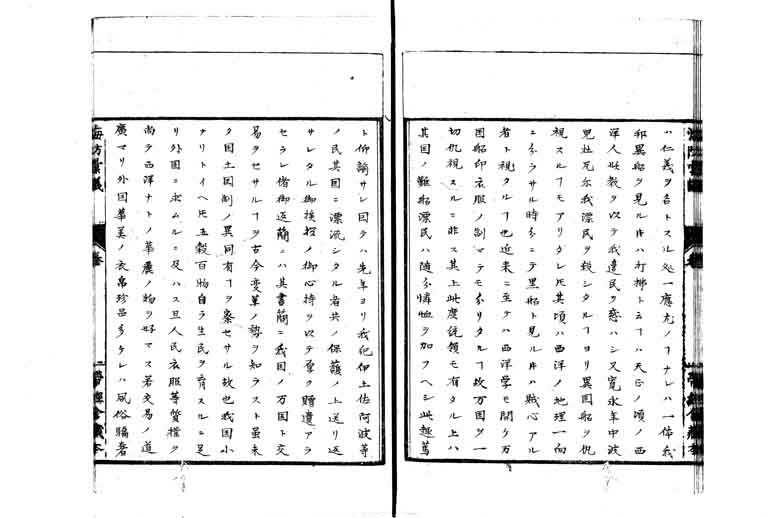 ハ仁義ヲ名トスル処一應尤ノヿナレハ一体我
和異船ヲ見ル𬼂ハ打拂ト云ヿハ天正ノ頃ノ西
洋人此教ヲ以テ我邊民ヲ惑ハシ又寛永年中波
児杜瓦尓我漂民ヲ殺シタルヿヨリ異国船ヲ仇
視スルヿモアリタレ𪜈其頃ハ西洋ノ地理一向
ニ分ラサル時分ニテ黒船ト見ル𬼂ハ賊心アル
者ト視タルヿ也近来ニ至テハ西洋学モ開ケ万
国船印衣服ノ制マテモ分リタルヿ故万国ヲ一
切仇視スルニ非ス其上此度統領モ有タル上ハ
其国ノ難船漂民ハ随分憐恤ヲ加フヘシ此趣篤
ト仰諭サレ因テハ先年ヨリ我紀伊土佐阿波等
ノ民其国ニ漂流シタル者共ノ保護ノ上送リ返
サレタル御挨拶ノ御心持ヲ以テ厚ク贈遺アラ
セラレ偖御返簡ニハ其書簡ニ我国ノ万国ト交
易ヲセサルヿヲ古今変革ノ勢ヲ知ラスト雖未
タ国土国制ノ異同有ヿヲ察セサル故也我国小
ナリトイヘ𪜈五穀百物自ラ生民ヲ育スルニ足
リ外国ニ求ムルニ及ハス且人民衣服等質撲ヲ
尚テ西洋ナトノ華麗ノ物ヲ好マス若交易ノ道
廣マリ外国華美ノ衣帛珍品多ケレハ風俗驕奢
海防彙議
巻